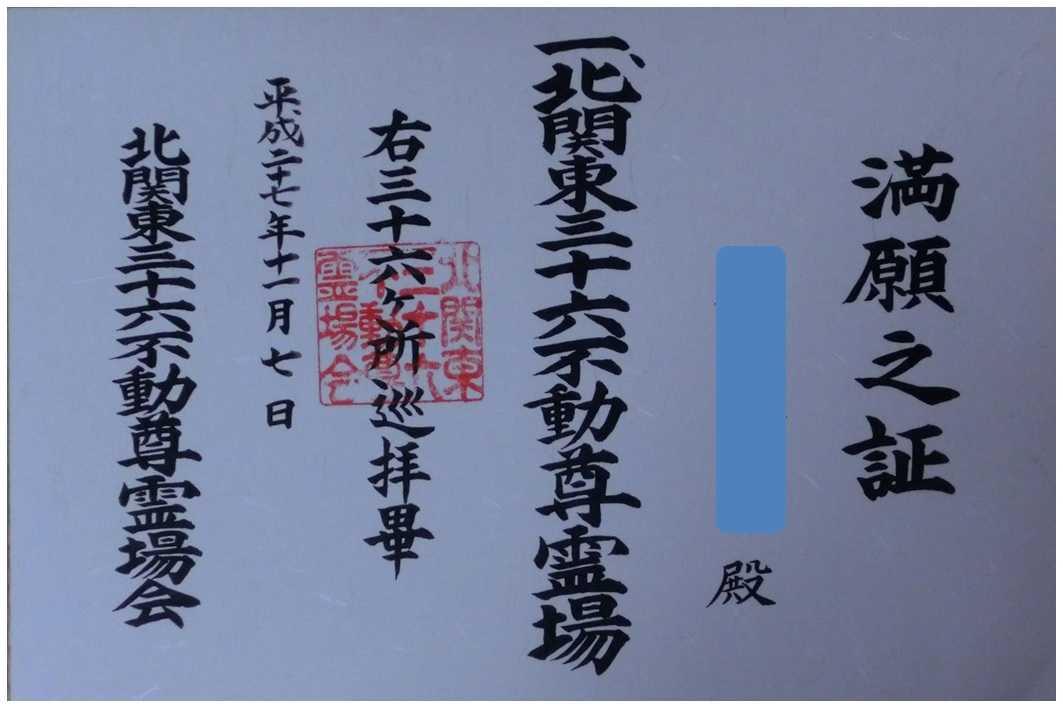 満願之証
殿
一、北関東三十六不動尊霊場
右三十六ヶ所巡拝畢
北関東
三十六
不動尊
霊場会
平成二十七年十一月七日
北関東三十六不動尊霊場会